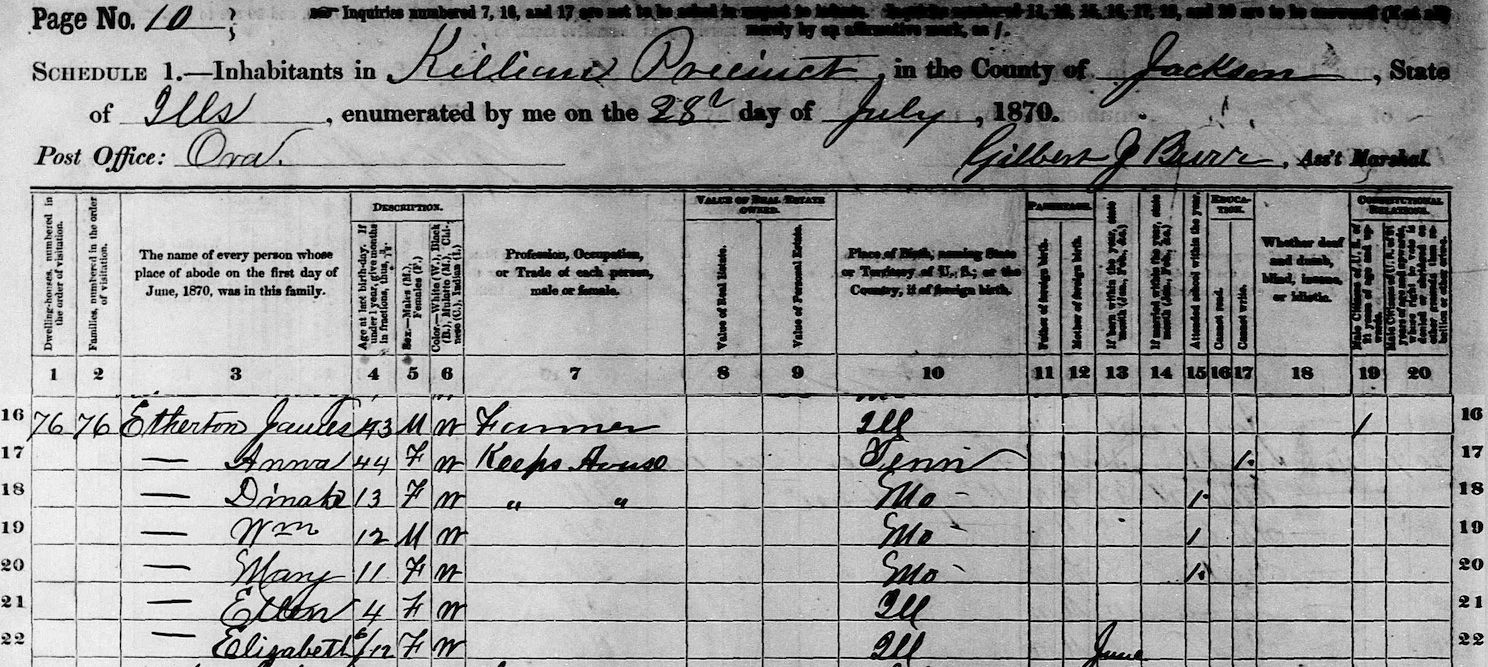 Page No. 10
Inquiries numbered 7, 16, and 17 are not to be asked in respect to infants. Inquiries numbered 11, 12, 15, 16, 17, 19, and 20 are to be answered (if at all)
merely by an affirmative mark, as /.
SCHEDULE 1.—Inhabitants in Killian Precinct, in the County of Jackson, State
of Ills, enumerated by me on the 28 day of July, 1870.
Post Office: Ora.
Gilbert J Burr, Ass't Marshal.
Dwelling-houses, numbered in the order of visitation.
Families, numbered in the order of visitation.
The name of every person whose place of abode on the first day of June, 1870, was in this family.
DESCRIPTION.
Age at last birth-day. If under 1 year, give months in fractions, thus, 3/12
Sex.—Males (M.), Females (F.)
Color.—White (W.), Black (B.), Mulatto (M.), Chinese (C.), Indian (I.)
Profession, Occupation, or Trade of each person, male or female.
VALUE OF REAL ESTATE OWNED.
Value of Real Estate.
Value of Personal Estate.
Place of Birth, naming State or Territory of U. S.; or the Country, if of foreign birth.
PARENTAGE.
Father of foreign birth.
Mother of foreign birth.
If born within the year, state month (Jan., Feb., &c.)
If married within the year, state month (Jan., Feb., &c.)
Attended school within the year.
EDUCATION.
Cannot read.
Cannot write.
Whether deaf and dumb, blind, insane, or idiotic.
CONSTITUTIONAL RELATIONS.
Male Citizens of U. S. of 21 years of age and upwards.
Male Citizens of U. S. of 21 years of age and upwards, whose right to vote is denied or abridged on other grounds than rebellion or other crime.
1 2 3 4 5 6 7 8 9 10 11 12 13 14 15 16 17 18 19 20
16 76 76 Etherton James 43 M W Farmer Ill / 16
17 — Anna 44 F W Keeps House Tenn 1 17
18 — Dinah 13 F W " " Mo 1 18
19 — Wm 12 M W Mo 1 19
20 — Mary 11 F W Mo 1 20
21 — Ellen 4 F W Ill 21
22 — Elizabeth /12 F W Ill June 22